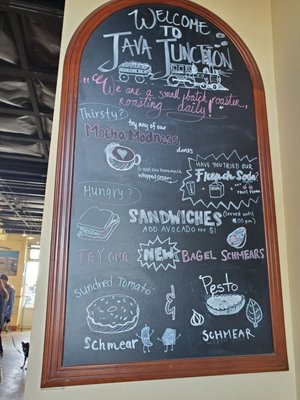 WELCOME
TO
JAVA JUNCTION
"We are a small batch roaster,
roasting daily!"
Thirsty?
try any of our
Mocha Madness
drinks
to add our homemade
whipped cream
HAVE YOU TRIED OUR
French Soda
Hungry?
SANDWICHES (served until
4:00 pm)
ADD AVOCADO for $1
TRY OUR NEW BAGEL SCHMEARS
Sundried Tomato
Schmear
&
Pesto
SCHMEAR